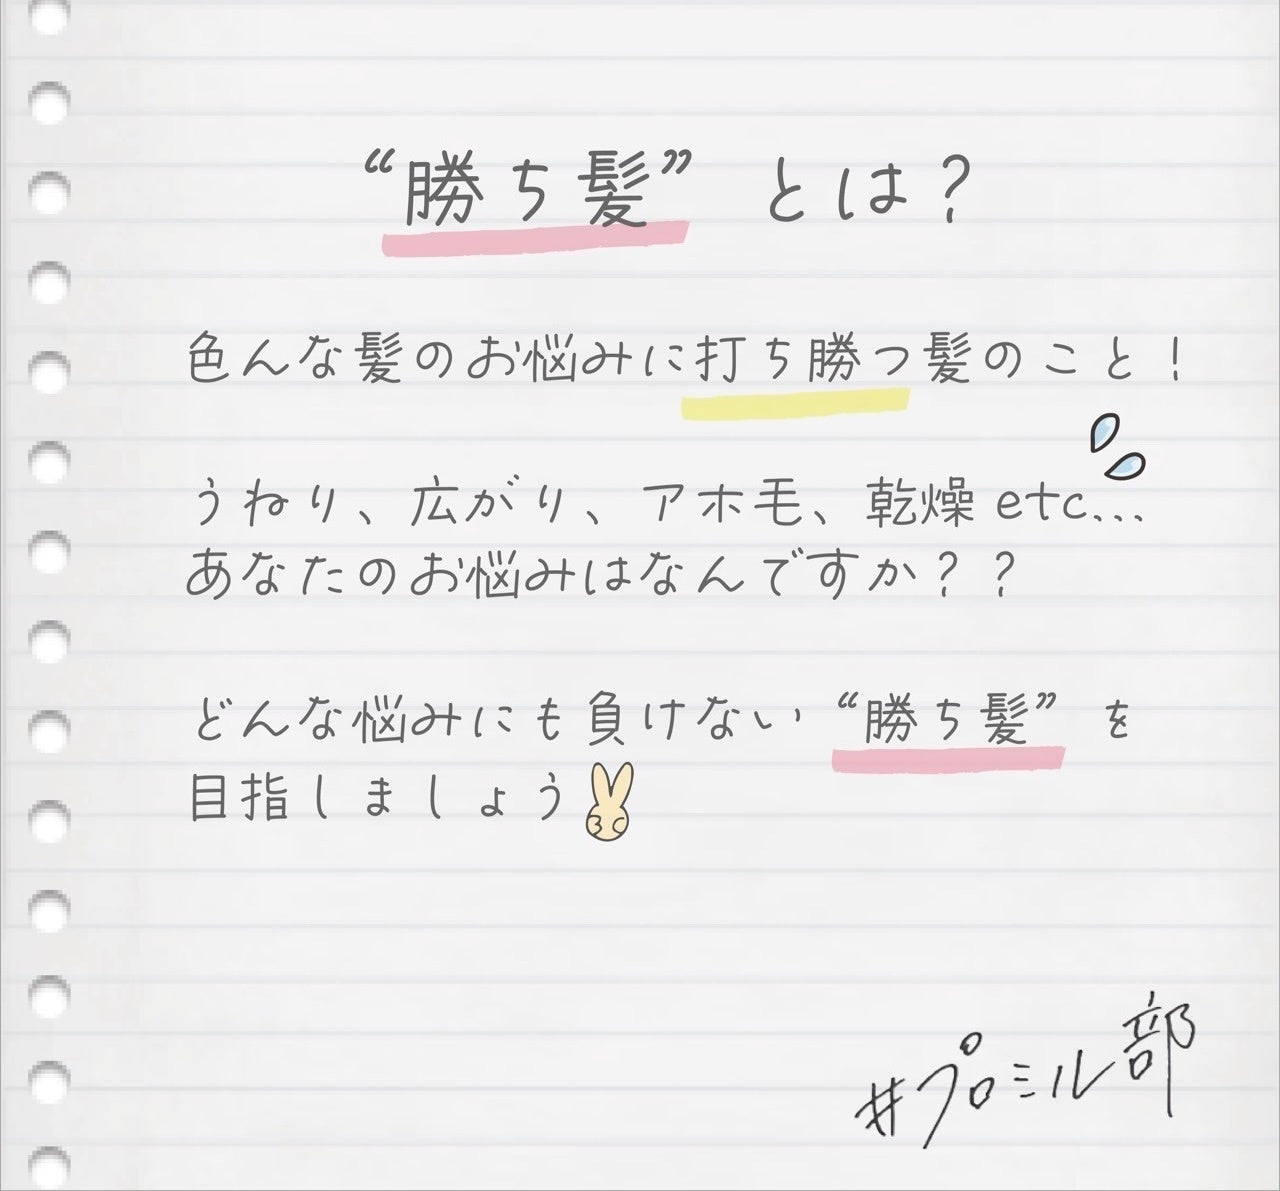 “勝ち髪” とは？
色んな髪のお悩みに打ち勝つ髪のこと！
うねり、広がり、アホ毛、乾燥 etc...
あなたのお悩みはなんですか？？
どんな悩みにも負けない “勝ち髪” を
目指しましょう
#プロミル部